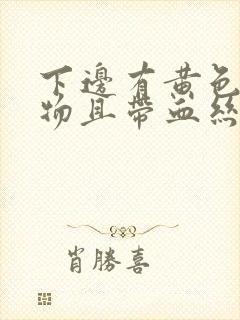 下邊有黄色
物且帶血絲
肖勝喜